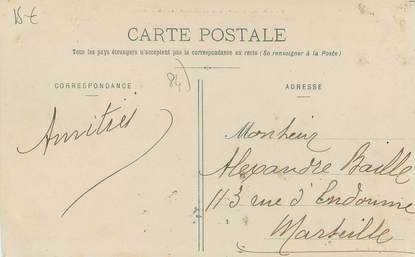 15 €
CARTE POSTALE
Tous les pays étrangers n'acceptent pas la correspondance au recto (Se renseigner à la Poste)
84)
CORRESPONDANCE
ADRESSE
Amitiés
Monsieur
Alexandre Baille
113 rue d'Endoume
Marseille